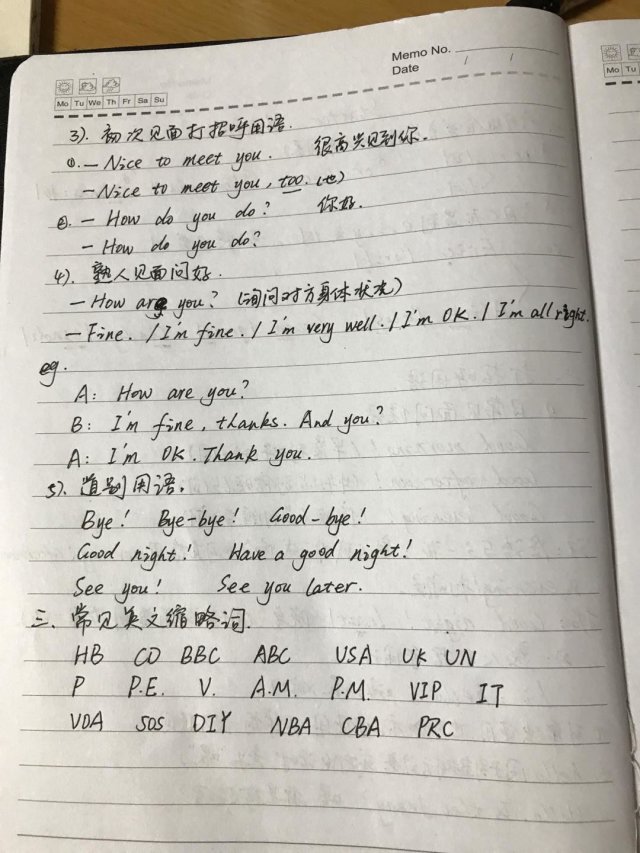 Memo No.
Date / /
Mo Tu We Th Fr Sa Su
3). 初次见面打招呼用语.
①. — Nice to meet you. 很高兴见到你.
— Nice to meet you, too. (也)
②. — How do you do? 你好.
— How do you do?
4). 熟人见面问好.
— How are you? (询问对方身体状况)
— Fine. / I'm fine. / I'm very well. / I'm OK. / I'm all right.
eg.
A: How are you?
B: I'm fine, thanks. And you?
A: I'm OK. Thank you.
5). 道别用语.
Bye! Bye-bye! Good-bye!
Good night! Have a good night!
See you! See you later.
三. 常见英文缩略词.
HB CD BBC ABC USA UK UN
P P.E. V. A.M. P.M. VIP IT
VOA SOS DIY NBA CBA PRC
Mo Tu